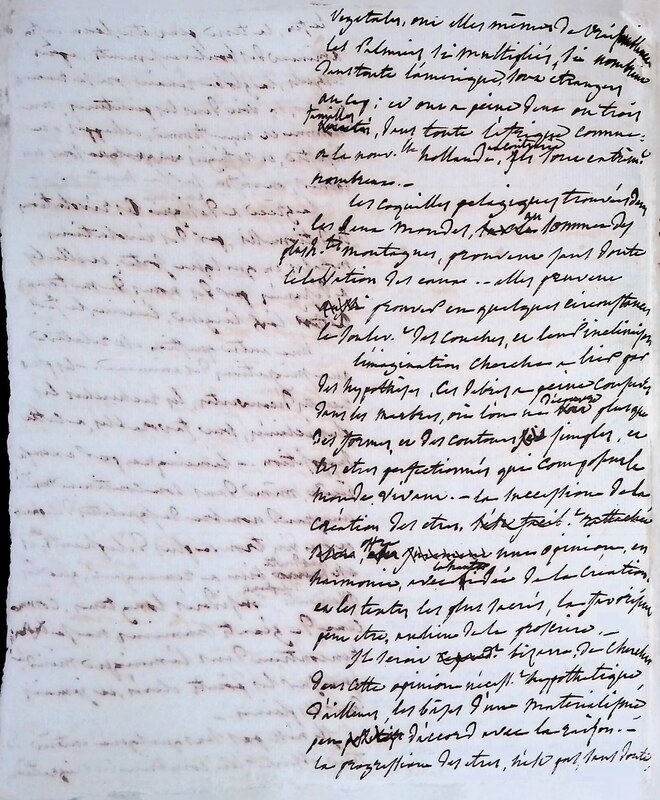 Vegetales, où elles mêmes de
les Palmiers si multipliés, si nombreux
dans toute l'amérique, sont etrangers
au cap; et on a peine deux ou trois
familles
dans toute l'afrique comme
à la nouv.lle hollande, ils sont extrêm.t
nombreux. —
les coquilles pelagiques trouvées dans
les deux mondes, au sommet des
plus h.tes montagnes, prouvent sans doute
l'élévation des eaux — elles peuvent
prouver en quelques circonstances
le soulev.t des couches, et leur inclinaison
l'imagination cherche a lier par
des hypothèses, ces debris a peine conservés
dans les marbres, où l'on ne découvre plus que
des formes, et des contours simples, et
les etres perfectionnés qui composent le
monde vivant. — la succession de la
création des etres, rattachée
une opinion, en
harmonie, avec l'idée de la Creation
et les textes les plus sacrés, la favorisent
peut etre, au lieu de la proscrire. —
Il seroit bizarre, de chercher
dans cette opinion hypothetique
d'ailleurs, les bases d'une materialisme
peu d'accord avec la raison. —
la progression des etres, n'est pas, sans doute,